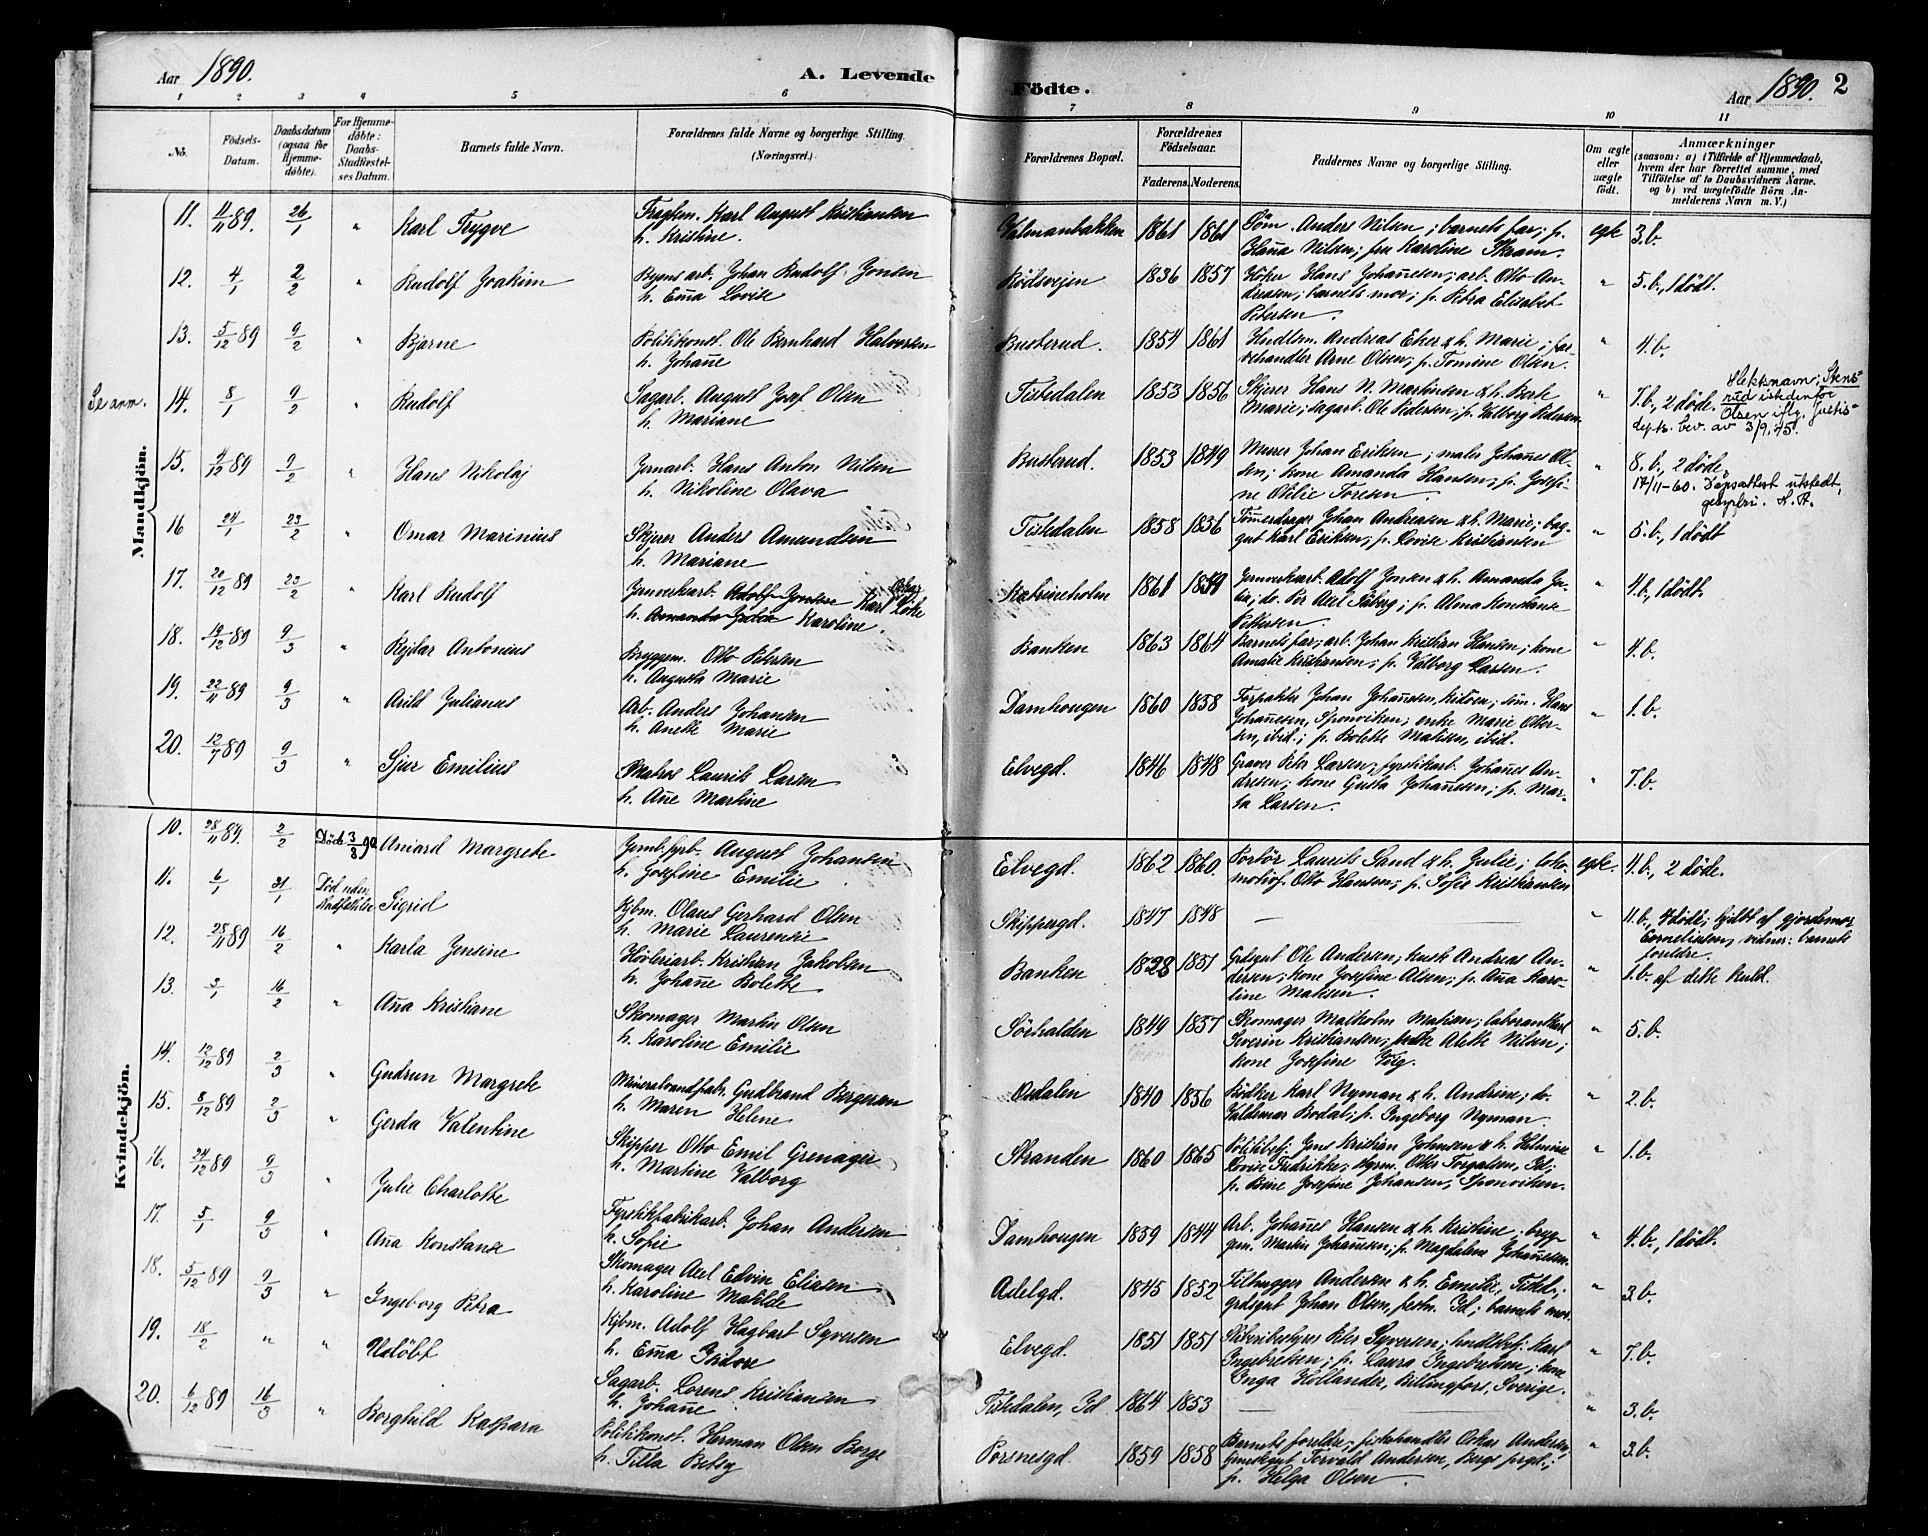 Aar 1890.
A. Levende
Födte.
Aar 1890. 2
1 2 3 4 5 6 7 8 9 10 11
No.
Födsels-Datum.
Daabsdatum (ogsaa for Hjemme-döbte).
For Hjemme-döbte: Daabs-Stadfæstel-ses Datum.
Barnets fulde Navn.
Forældrenes fulde Navne og borgerlige Stilling.
(Næringsvei.)
Forældrenes Bopæl.
Forældrenes Födselsaar.
Faderens. Moderens.
Faddernes Navne og borgerlige Stilling.
Om ægte eller uægte födt.
Anmærkninger
(saasom: a) i Tilfælde af Hjemmedaab, hvem der har forrettet samme, med Tilföielse af to Daabsvidners Navne. og b) ved uægtefödte Börn Anmelderens Navn m. V.)
Mandkjön.
11. 11/11 89. 26/1 " Karl Trygve
Karl August Kristiansen
h. Kristine.
Valmanbakken 1861 1861
Söm. Anders Nilsen; barnets far; p.
Hana Nilsen; fru Karoline Skram.
egte 3.b.
12. 4/1 2/2 " Rudolf Joakim
Byens arb. Johan Rudolf Jonsen
h. Ema Lovise
Rödsvejen 1836 1857
Höker Hans Johanesen; arb. Otto An-
dreasen; barnets mor; p. Petra Elisabet
Petersen.
" 5.b., 1 dödt.
13. 5/12 89 9/2 " Bjarne
Politikonst. Ole Bernhard Halvorsen
h. Johane
Busterud. 1854 1861
Hndlsm. Andreas Eker & h. Marie; far-
vehandler Arne Olsen; p. Tomine Olsen.
" 4.b.
Se anm. 14. 8/1 9/2 " Rudolf
Sagarb. August Josef Olsen
h. Mariane
Tistedalen 1853 1856
Skjerer Hans N. Martinsen & h. Berte
Marie; sagarb. Ole Pedersen; p. Valborg Pedersen
" 7.b., 2 döde.
Slektsnavn: Stens-
rud istedenfor
Olsen iflg. Justis-
dept. bev. av 3/9.45.
15. 9/12 89 9/2 " Hans Nikolaj
Jernarb. Hans Anton Nilsen
h. Nikoline Olava
Busterud. 1853 1849
Murer Johan Eriksen; maler Johanes Ol-
sen; kone Amanda Hansen; p. Josefi-
ne Otilie Toresen.
" 8.b., 2 döde.
17/11-60. Dåpsattest utstedt,
16 24/1 23/2 " Omar Marinius
Skjerer Anders Amundsen
h. Mariane
Tistedalen 1858 1836
Tömmerdrager Johan Andreasen & h. Marie; bag-
gut Karl Eriksen; p. Lovise Kristiansen
" 5.b., 1 dödt
17. 20/12 89 23/2 " Karl Rudolf
Jernverksarb. Adolf Jonsen Karl Oskar Löke
h. Amanda Julia Karoline.
Katrineholm 1861 1859
Jernverksarb. Adolf Jonsen & h. Amanda Ju-
lia; do. Per Axel Säberg; p. Alma Konstanse
Pettersen.
" 4.b., 1 dödt.
18. 19/12 89 9/3 " Rejdar Antonius
Bryggem. Otto Petersen
h. Augusta Marie
Banken 1863 1864
Barnets far; arb. Johan Kristian Hansen; kone
Amalie Kristiansen; p. Valborg Larsen.
" 4.b.
19. 22/11 89 9/3 " Arild Julianus
Arb. Anders Johansen
h. Anette Marie
Damhougen 1860 1858
Johan Johanesen, söm. Hans
Johanesen, Sponviken; enke Marie Otter-
sen, ibid.; p. Bolette Matisen, ibid.
" 1.b.
20. 12/7 89 9/3 " Sjur Emilius
Matros Laurits Larsen
h. Ane Martine
Elvegd. 1846 1848
Graver Peter Larsen; fyrstikarb. Johanes An-
dresen; kone Gusta Johanesen; p. Mar-
ta Larsen.
" 7.b.
Kvindekjön.
10. 28/11 89. 2/2 Död 3/3 90 Aniard Margrete
August Johansen
h. Josefine Emilie
Elvegd. 1862 1860
Portör Laurits Sand & h. Julie; loko-
motivf. Otto Hansen; p. Sofie Kristiansen
egte. 4.b., 2 döde.
11. 6/1 31/1 Död uden Stadfæstelse Sigrid
Kjbm. Olaus Gerhard Olsen
h. Marie Laurense
Skippergd. 1847 1848 —
" 11.b., 4 döde; hjdbt af gjordemor
Corneliussen, vidner: barnets
foreldre.
12. 28/11 89 16/2 " Karla Jensine
Hövleriarb. Kristian Jakobsen
h. Johane Bolette
Banken 1828 1851
Grdsgut Ole Andersen; kusk Andreas An-
dersen; kone Josefine Alsen; p. Ana Karo-
line Matisen.
" 1.b. af dette kuld.
13. 3/1 16/2 " Ana Kristiane
Skomager Martin Olsen
h. Karoline Emilie
Sörhalden 1849 1857
Skomager Malkolm Matisen; laborantkarl
Severin Kristiansen; Alette Nilsen;
kone Josefine
" 5.b.
14. 12/12 89 2/3 " Gudrun Margrete
Mineralvandfabr. Gudbrand Bergersen
h. Maren Helene
Osdalen 1840 1856
Bödker Karl Nyman & h. Andrine; do.
Valdemar Bodal; p. Ingeborg Nyman.
" 2.b.
15. 8/12 89 2/3 " Gerda Valentine
Skipper Otto Emil Grenager
h. Martine Valborg
Stranden 1860 1865
Politibetj. Jens Kristian Johnsen & h. Helmine
Lovise Fredrikke; styrm. Otter Torgalsen, Id;
p. Bine Josefine Johansen, Sponviken.
" 1.b.
16. 24/12 89 9/3 " Julie Charlotte
Fyrstikfabrikarb. Johan Andersen
h. Sofie
Damhougen 1859 1844
Arb. Johanes Hansen & h. Kristine; bryg-
gem. Martin Johansen; p. Magdalene Johanesen.
" 4.b., 1 dödt.
17. 5/1 9/3 " Ana Konstanse
Skomager Axel Edvin Eliasen
h. Karoline Matilde
Adelgd. 1845 1852
Tilhugger Andersen & h. Emilie, Tistd.;
grdsgut Johan Olsen, Id; barnets mor.
" 3.b.
18. 5/12 89 9/3 " Ingeborg Petra
Kjbm. Adolf Hagbart Syversen
h. Ema Isidore
Elvegd. 1851 1851
Peter Syversen; hndlbetj. Karl
Ingebretsen; p. Laura Ingebretsen; kone
Inga Hollander, Billingsfors, Sverige.
" 7.b.
19. 18/2 " " Udöbt
Sagarb. Lorens Kristiansen
h. Johane
Tistedalen, Id 1864 1853 —
" 3.b.
20. 6/12 89 16/3 " Borghild Kaspara
Politikonst. Herman Olsen Borge
h. Tilla Betsy
Porsnesgd. 1859 1858
Barnets foreldre; fiskehandler Oskar Andersen;
Torvald Andersen, Bergs prgd.;
p. Helga Olsen.
" 3.b.